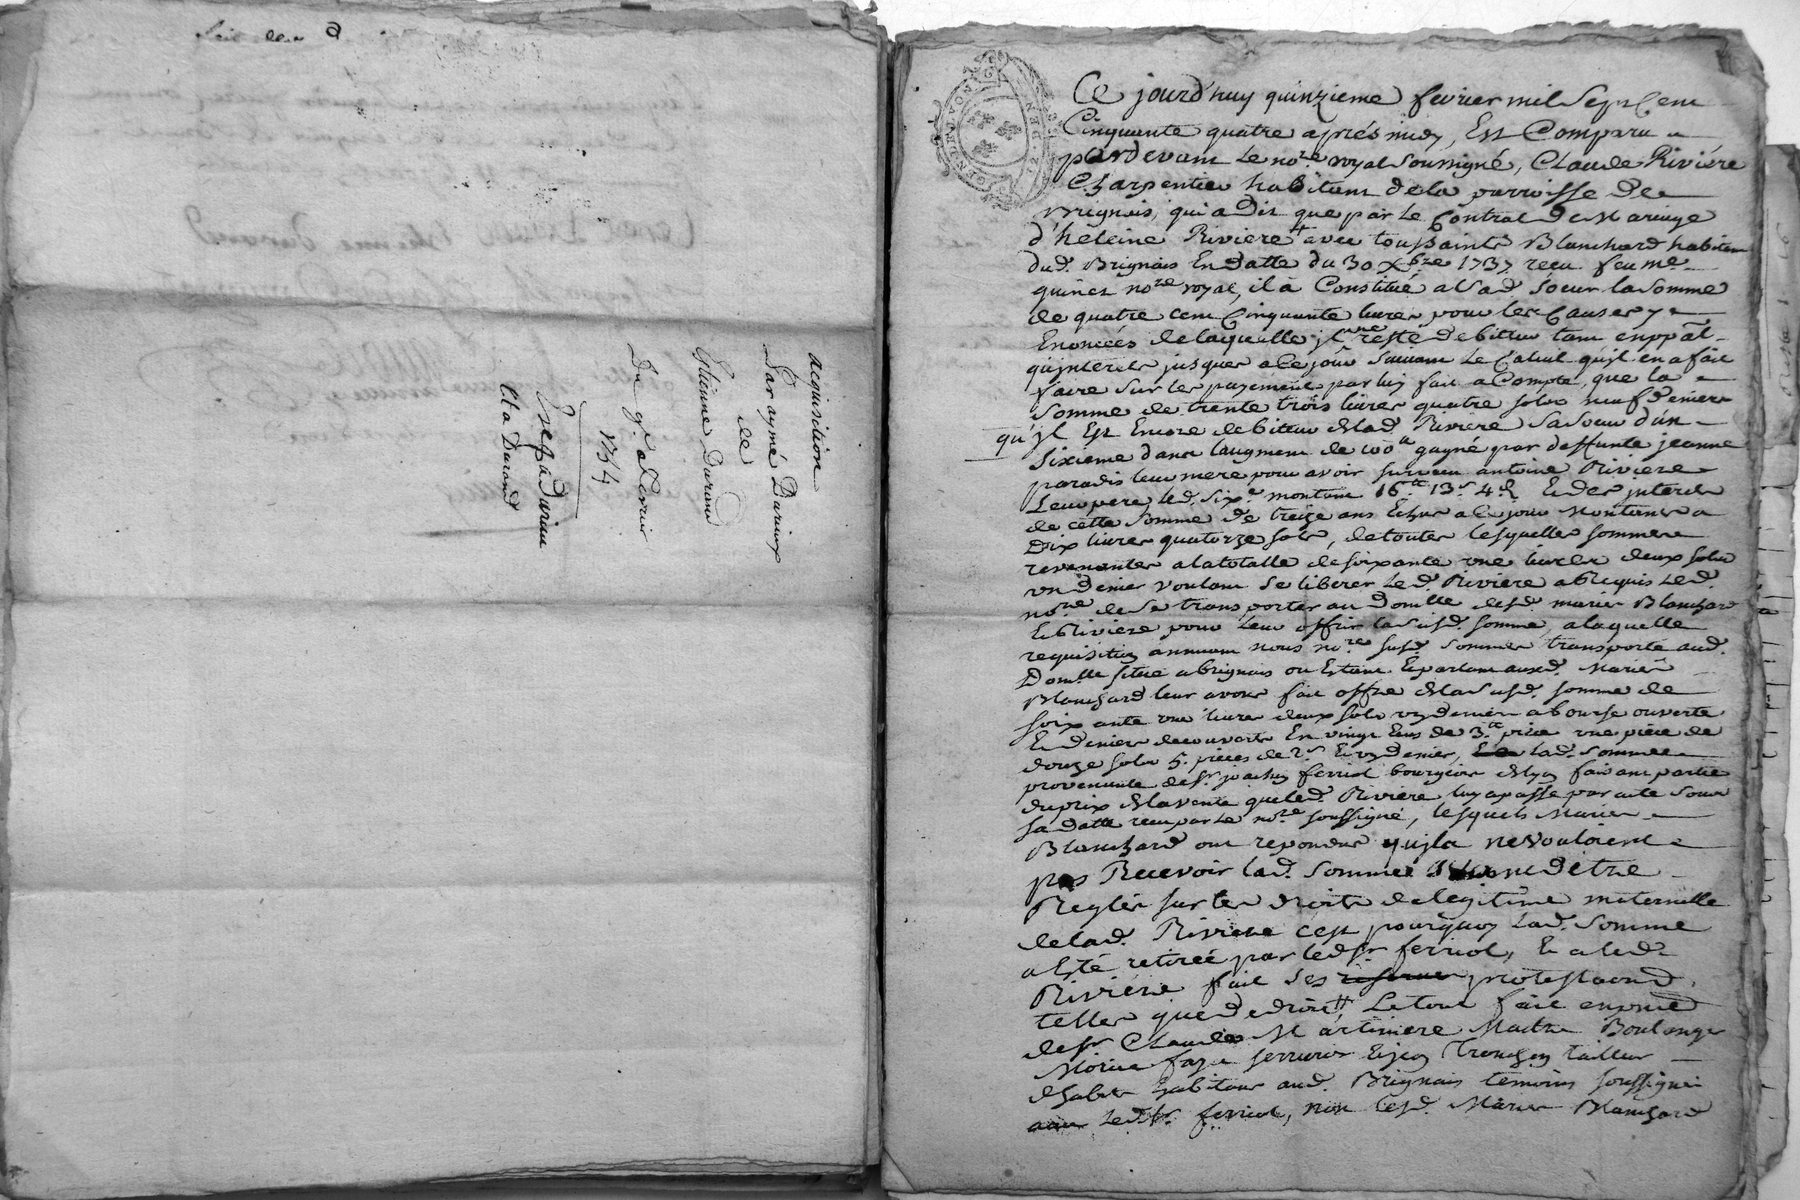 acquisition
Par aymé Durieux
de
Etienne Durand
Du 9e. Février
1754
Exp. a Durieux
Et a Durand
Ce jourd'huy quinzieme fevrier mil Sept Cent
Cinquante quatre aprés midy, Est Comparu
pardevant Le nore. royal soussigné, Claude Riviére
Charpentier habitant de la parroisse de
Brignais, qui a dit que par Le Contrat de Mariage
d'heleine Riviere avec toussaints Blanchard habitant
dud. Brignais En datte du 30 Xbre 1737 recu feu me.
guinet nore royal, il à Constitué a Sad. Soeur la somme
de quatre cent Cinquante livres pour les Causes y
Enoncées de laquelle jl ne reste debitteur tant en ppãl
qu'jnterets jusques a Ce jour Suivant Le Calcul qu'jl en a fait
faire Sur les payements par luy fait a Compte, que la
Somme de trente trois livres quatre sols neuf deniers
qu'jl Est Encore debitteur de lad. Riviere Sa Soeur d'un
Sixieme dans l'augment de 100tt gagné par deffunte jeanne
paradis leur mere pour avoir survecu antoine Riviere
Leur pere, led. Sixe. montant 16tt 13s 4d Et des jnterets
de cette Somme de treize ans Echus a Ce jour Montants a
Dix livres quatorze sols, de toutes lesquelles sommes
revenantes a la totalle de soixante une livres deux sols
un denier voulant Se liberer Led. Riviere a Requis Led.
nore de Se transporter au Domlle desd. mariés Blanchard
Et Riviere pour leur offrir la Susd. somme, a laquelle
requisition annuant nous nore susd. Sommes transporté aud.
Domlle situé a brignais ou Estant Et parlant auxd. Mariés
Blanchard leur avons fait offre de la Susd. somme de
soixante une livres deux sols un denier a bourse ouverte
Et deniers decouverts En vingt Ecus de 3tt piéce une piéce de
douze sols 5. piéces de 2s Et un denier, lad. Somme
provenante de sr. joachin ferriol bourgeois de lyon faisant partie
du prix de la vente que led. Riviere luy a passé par acte sous
sa datte recu par Le nore soussigné, lesquels Mariés
Blanchard ont repondus qu'jls ne vouloient
pas Recevoir lad. Somme avant d'être
Reglés sur les droits de legitime maternelle
de lad. Riviere c'est pourquoy Lad. Somme
a Esté retirée par led. sr. ferriol, Et a led.
Riviere fait Ses reserves protestaõns
telles que de droit, Le tout fait en pnce
de sr. Claude Martiniere Maitre Boulanger
serrurier Et jean tailleur
d'habits habitans aud. Brignais temoins soussignés
avec Led. sr. ferriol, non lesd. Mariés Blanchard